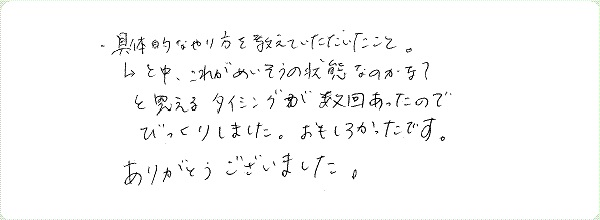 ・具体的なやり方を教えていただいたこと。
↳と中、これがめいそうの状態なのかな?
と思えるタイミングが数回あったので
びっくりしました。おもしろかったです。
ありがとうございました。